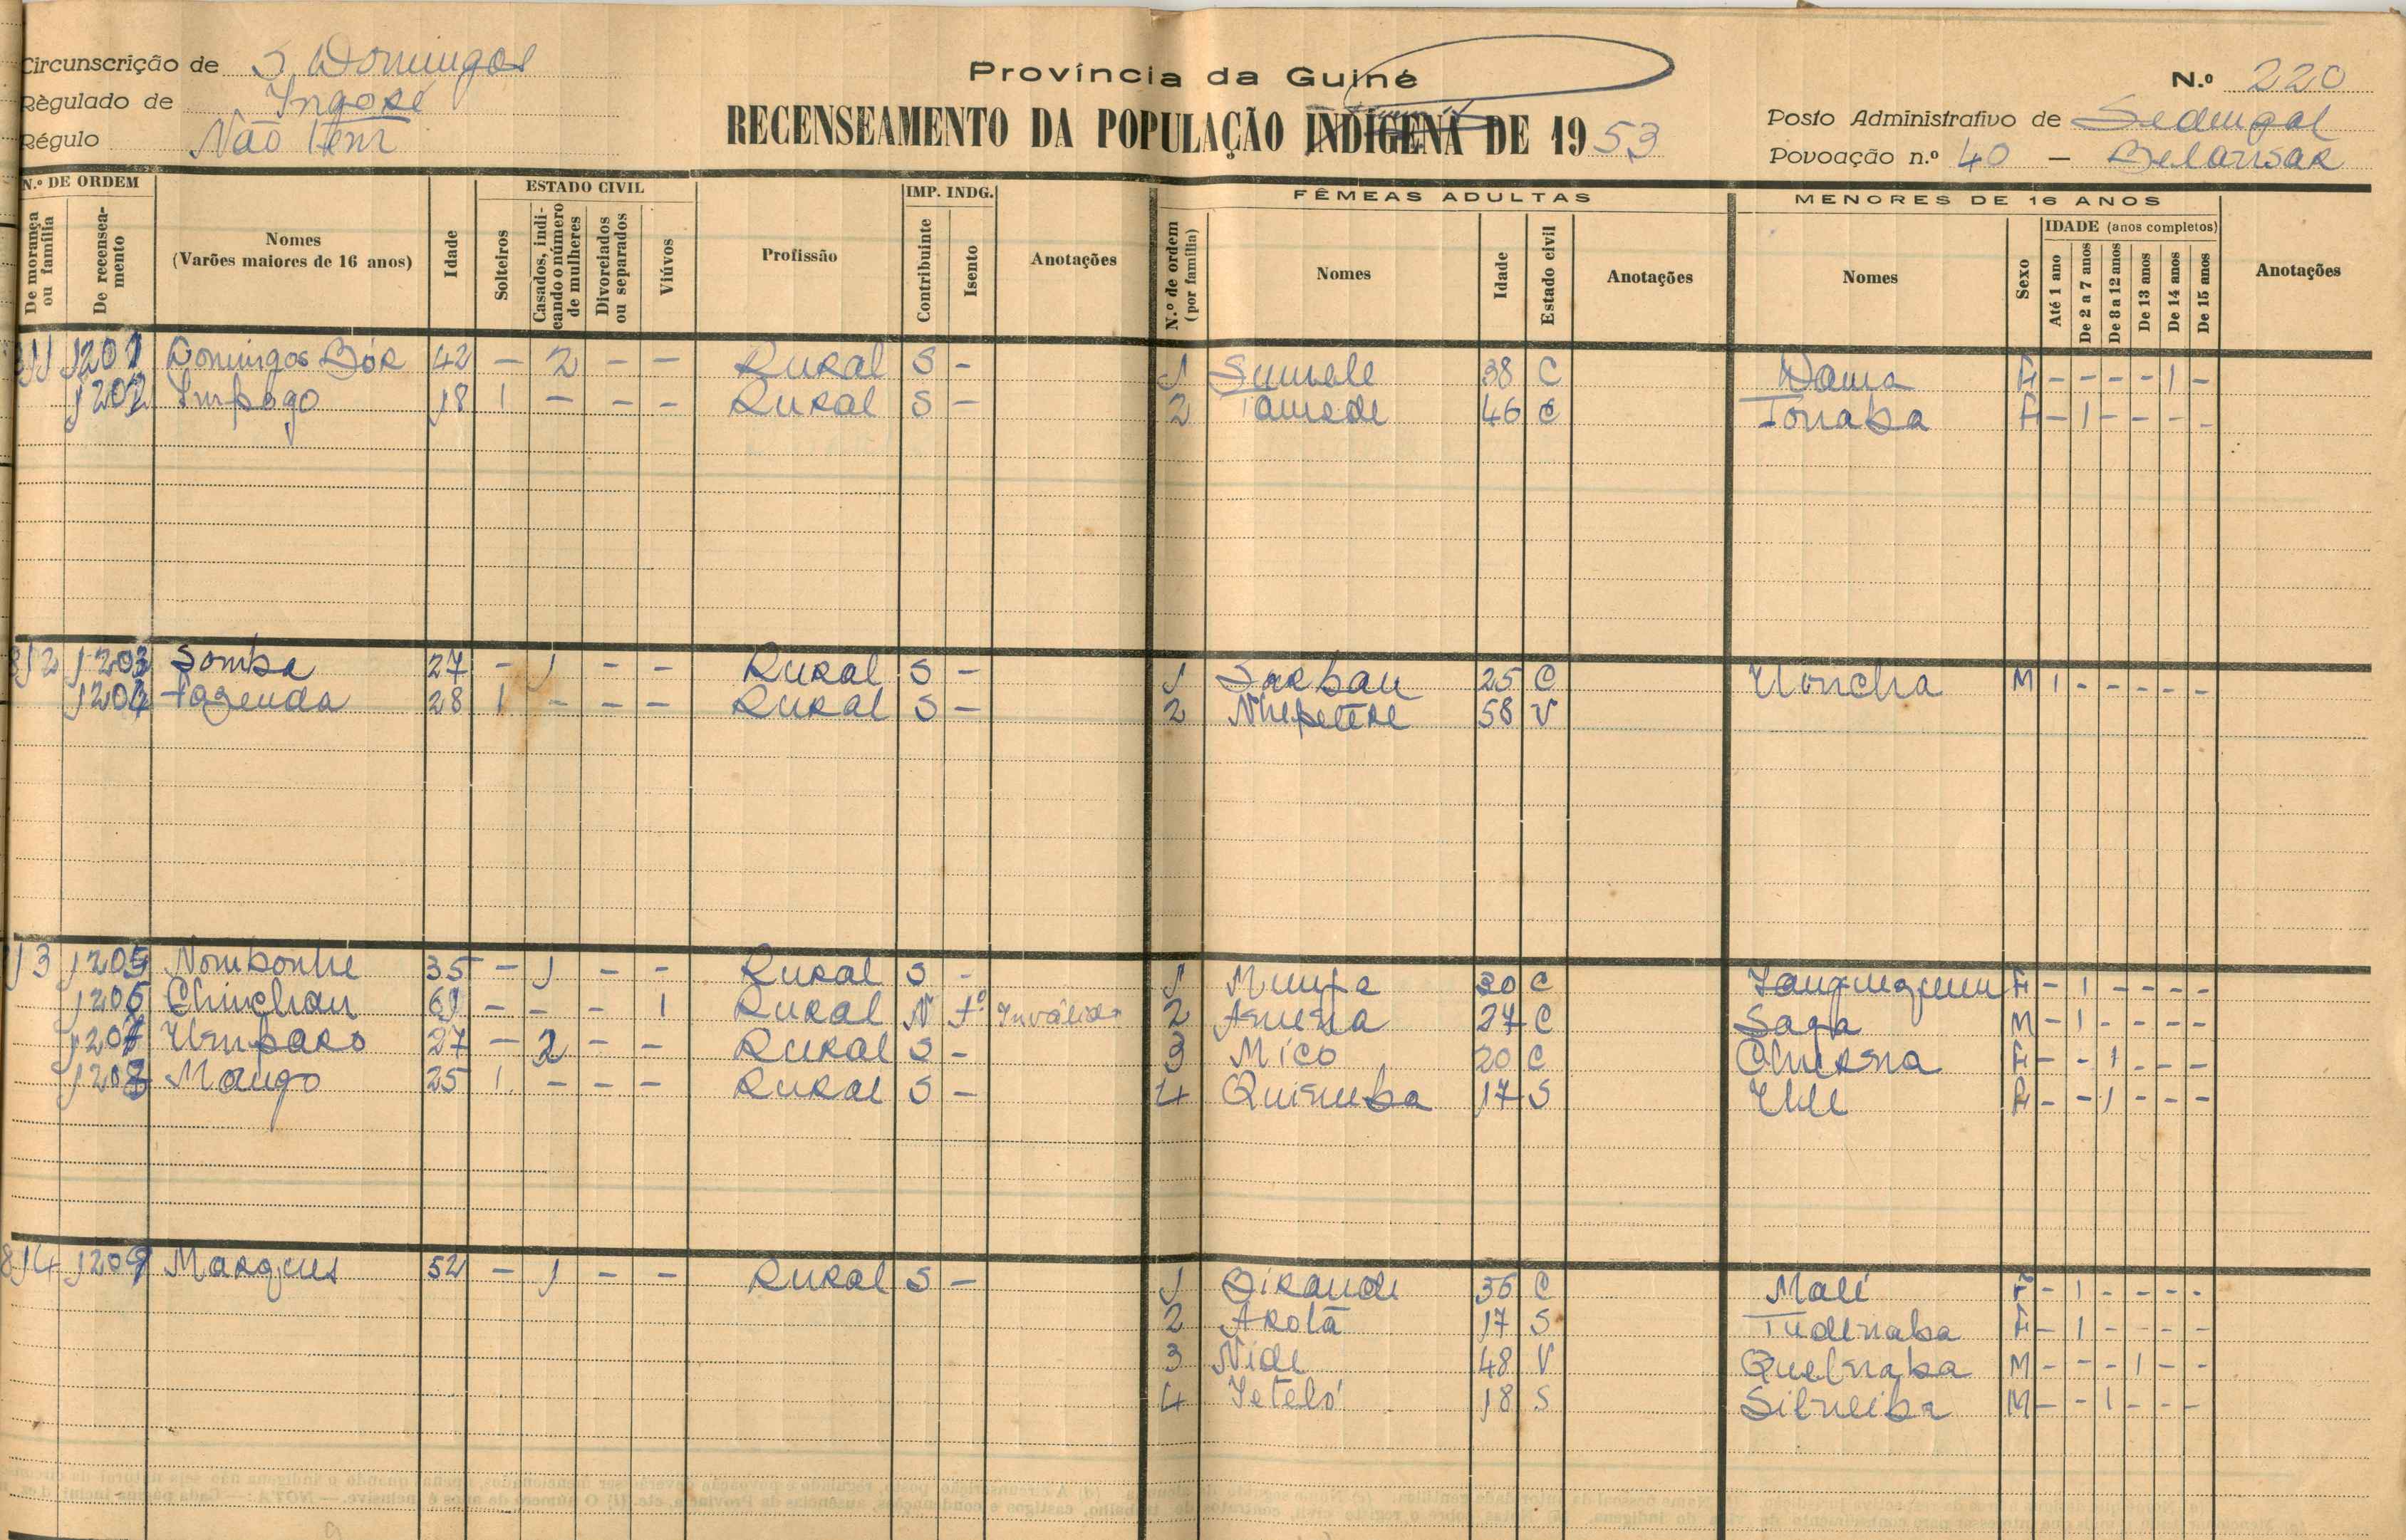 Circunscrição de S. Domingos
Règulado de Ingoré
Régulo Não tem
Província da Guiné
RECENSEAMENTO DA POPULAÇÃO INDÍGENA DE 1953
N.º 220
Posto Administrativo de Sedengal
Povoação n.º 40 - Belansar
N.º DE ORDEM
De morança ou família
De recenseamento
Nomes
(Varões maiores de 16 anos)
Idade
ESTADO CIVIL
Solteiros
Casados, indicando o número de mulheres
Divorciados ou separados
Viúvos
Profissão
IMP. INDG.
Contribuinte
Isento
Anotações
FÊMEAS ADULTAS
N.º de ordem (por família)
Nomes
Idade
Estado civil
Anotações
MENORES DE 16 ANOS
Nomes
Sexo
IDADE (anos completos)
Até 1 ano
De 2 a 7 anos
De 8 a 12 anos
De 13 anos
De 14 anos
De 15 anos
Anotações
1201 Domingos Bór 42 - 2 - - Rural S - 1 Sumele 38 C Dama F - - - - 1 -
1202 Impogo 18 1 - - - Rural S - 2 Tamede 46 C Tonaba F - 1 - - - -
8/2 1203 Somba 27 - 1 - - Rural S - 1 Sarbau 25 C Uoncha M 1 - - - - -
1204 Fazenda 28 1 - - - Rural S - 2 58 V
1/3 1205 Nombonhe 35 - 1 - - Rural S - 1 30 C F - 1 - - - -
1206 Chinchau 61 - - - 1 Rural N Inválido 2 27 C Saga M - 1 - - - -
1207 Umparo 27 - 2 - - Rural S - 3 Mico 20 C F - - 1 - - -
1208 Mango 25 1 - - - Rural S - 4 Quinuba 17 S F - - 1 - - -
8/4 1209 Marques 52 - 1 - - Rural S - 1 Birande 36 C Malí F - 1 - - - -
2 Arotã 17 S Tudenaba F - 1 - - - -
3 Nide 48 V Quebnaba M - - - 1 - -
4 Ieteló 18 S M - - 1 - - -